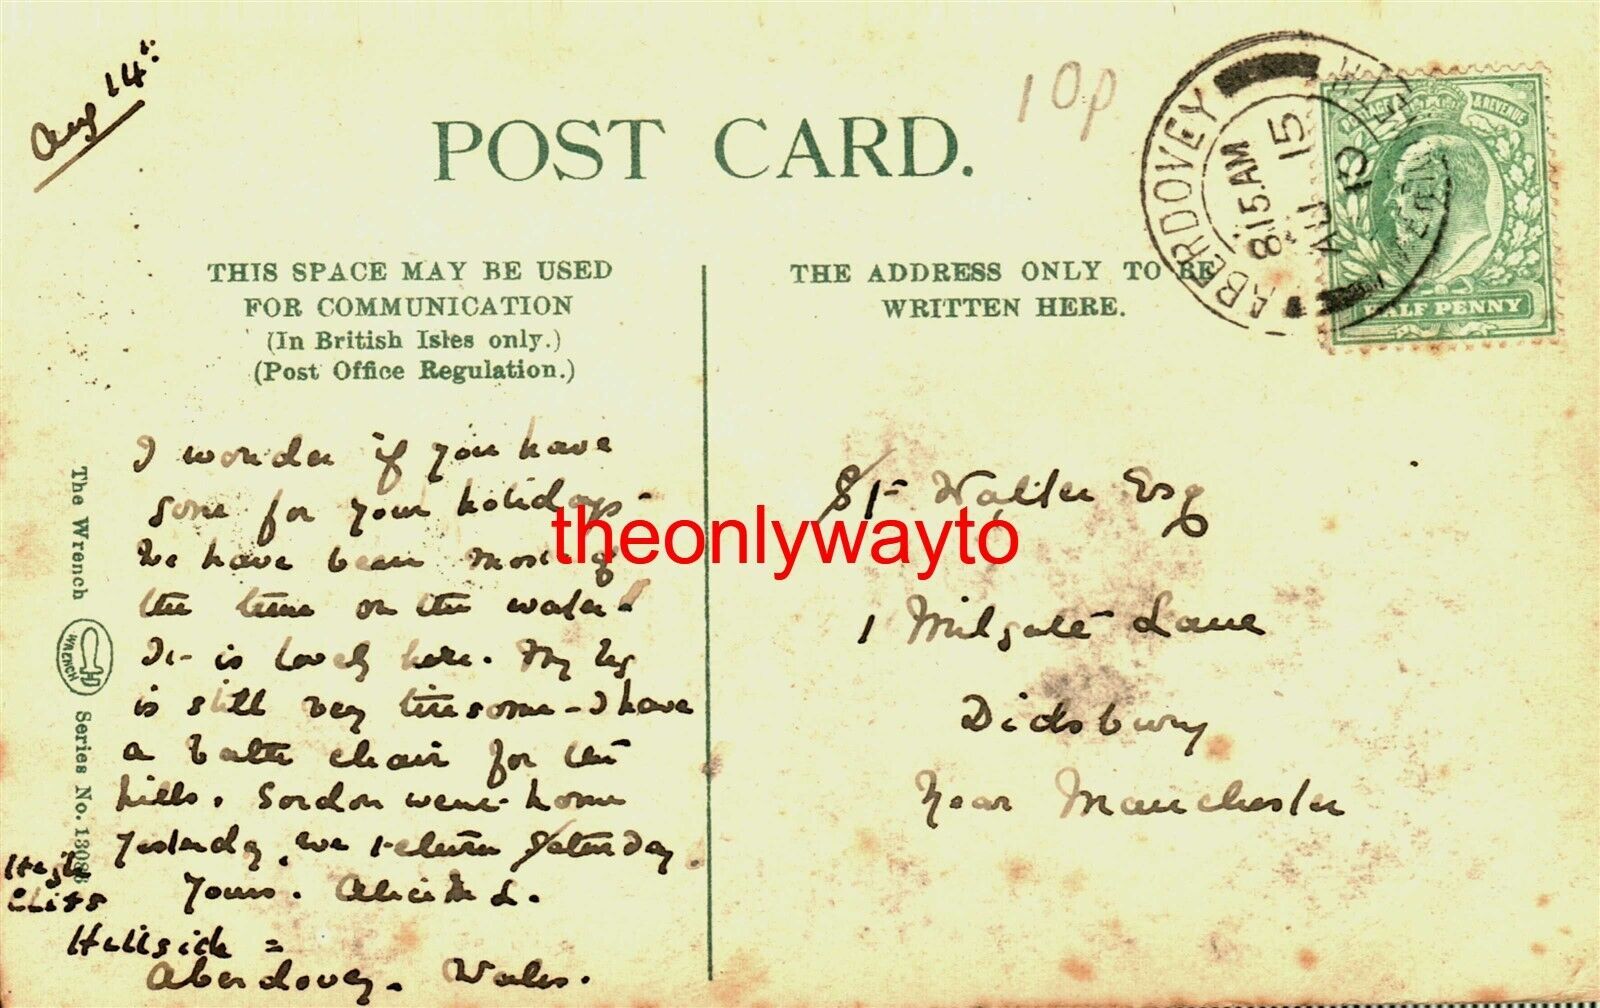 Aug 14th
10p
POST CARD.
ABERDOVEY
8 15 AM
AU 15
10
POSTAGE & REVENUE
HALF PENNY
THIS SPACE MAY BE USED
FOR COMMUNICATION
(In British Isles only.)
(Post Office Regulation.)
THE ADDRESS ONLY TO BE
WRITTEN HERE.
I wonder if you have
gone for your holidays-
We have been most of
the time on the water.
It is lovely here. My leg
is still very tiresome - I have
a bath chair for the
hills. Gordon went home
yesterday, we return Saturday.
Yours. Alice M L.
High
Cliff
Hillside =
Aberdovey. Wales.
Walter Esq
1 Milgate Lane
Didsbury
Near Manchester
The Wrench
WRENCH
Series No.
theonlywayto